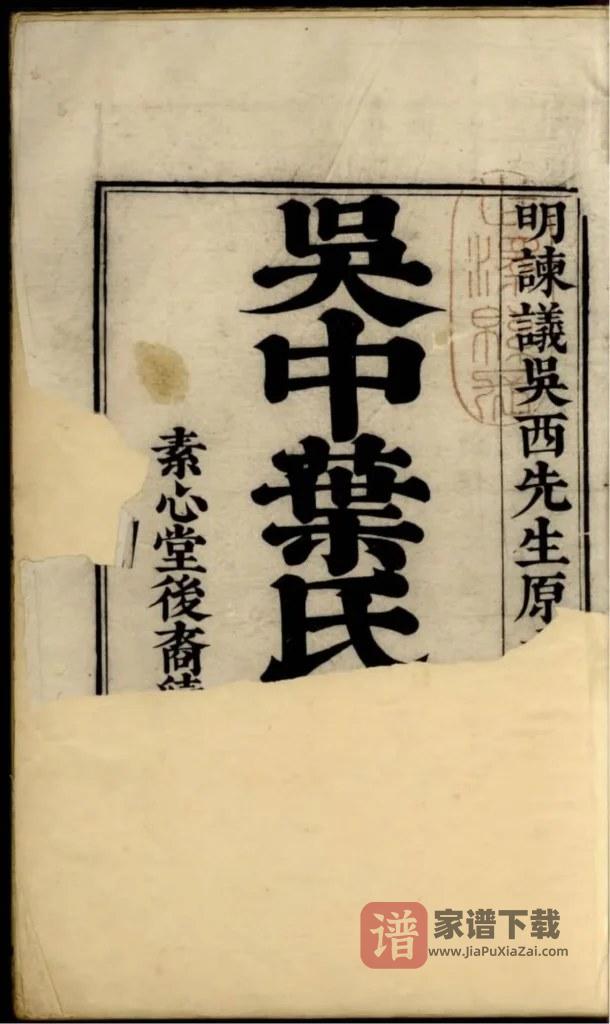 明諫議吳西先生原
吳中葉氏
素心堂後裔
谱 家谱下载
www.JiaPuXiaZai.com